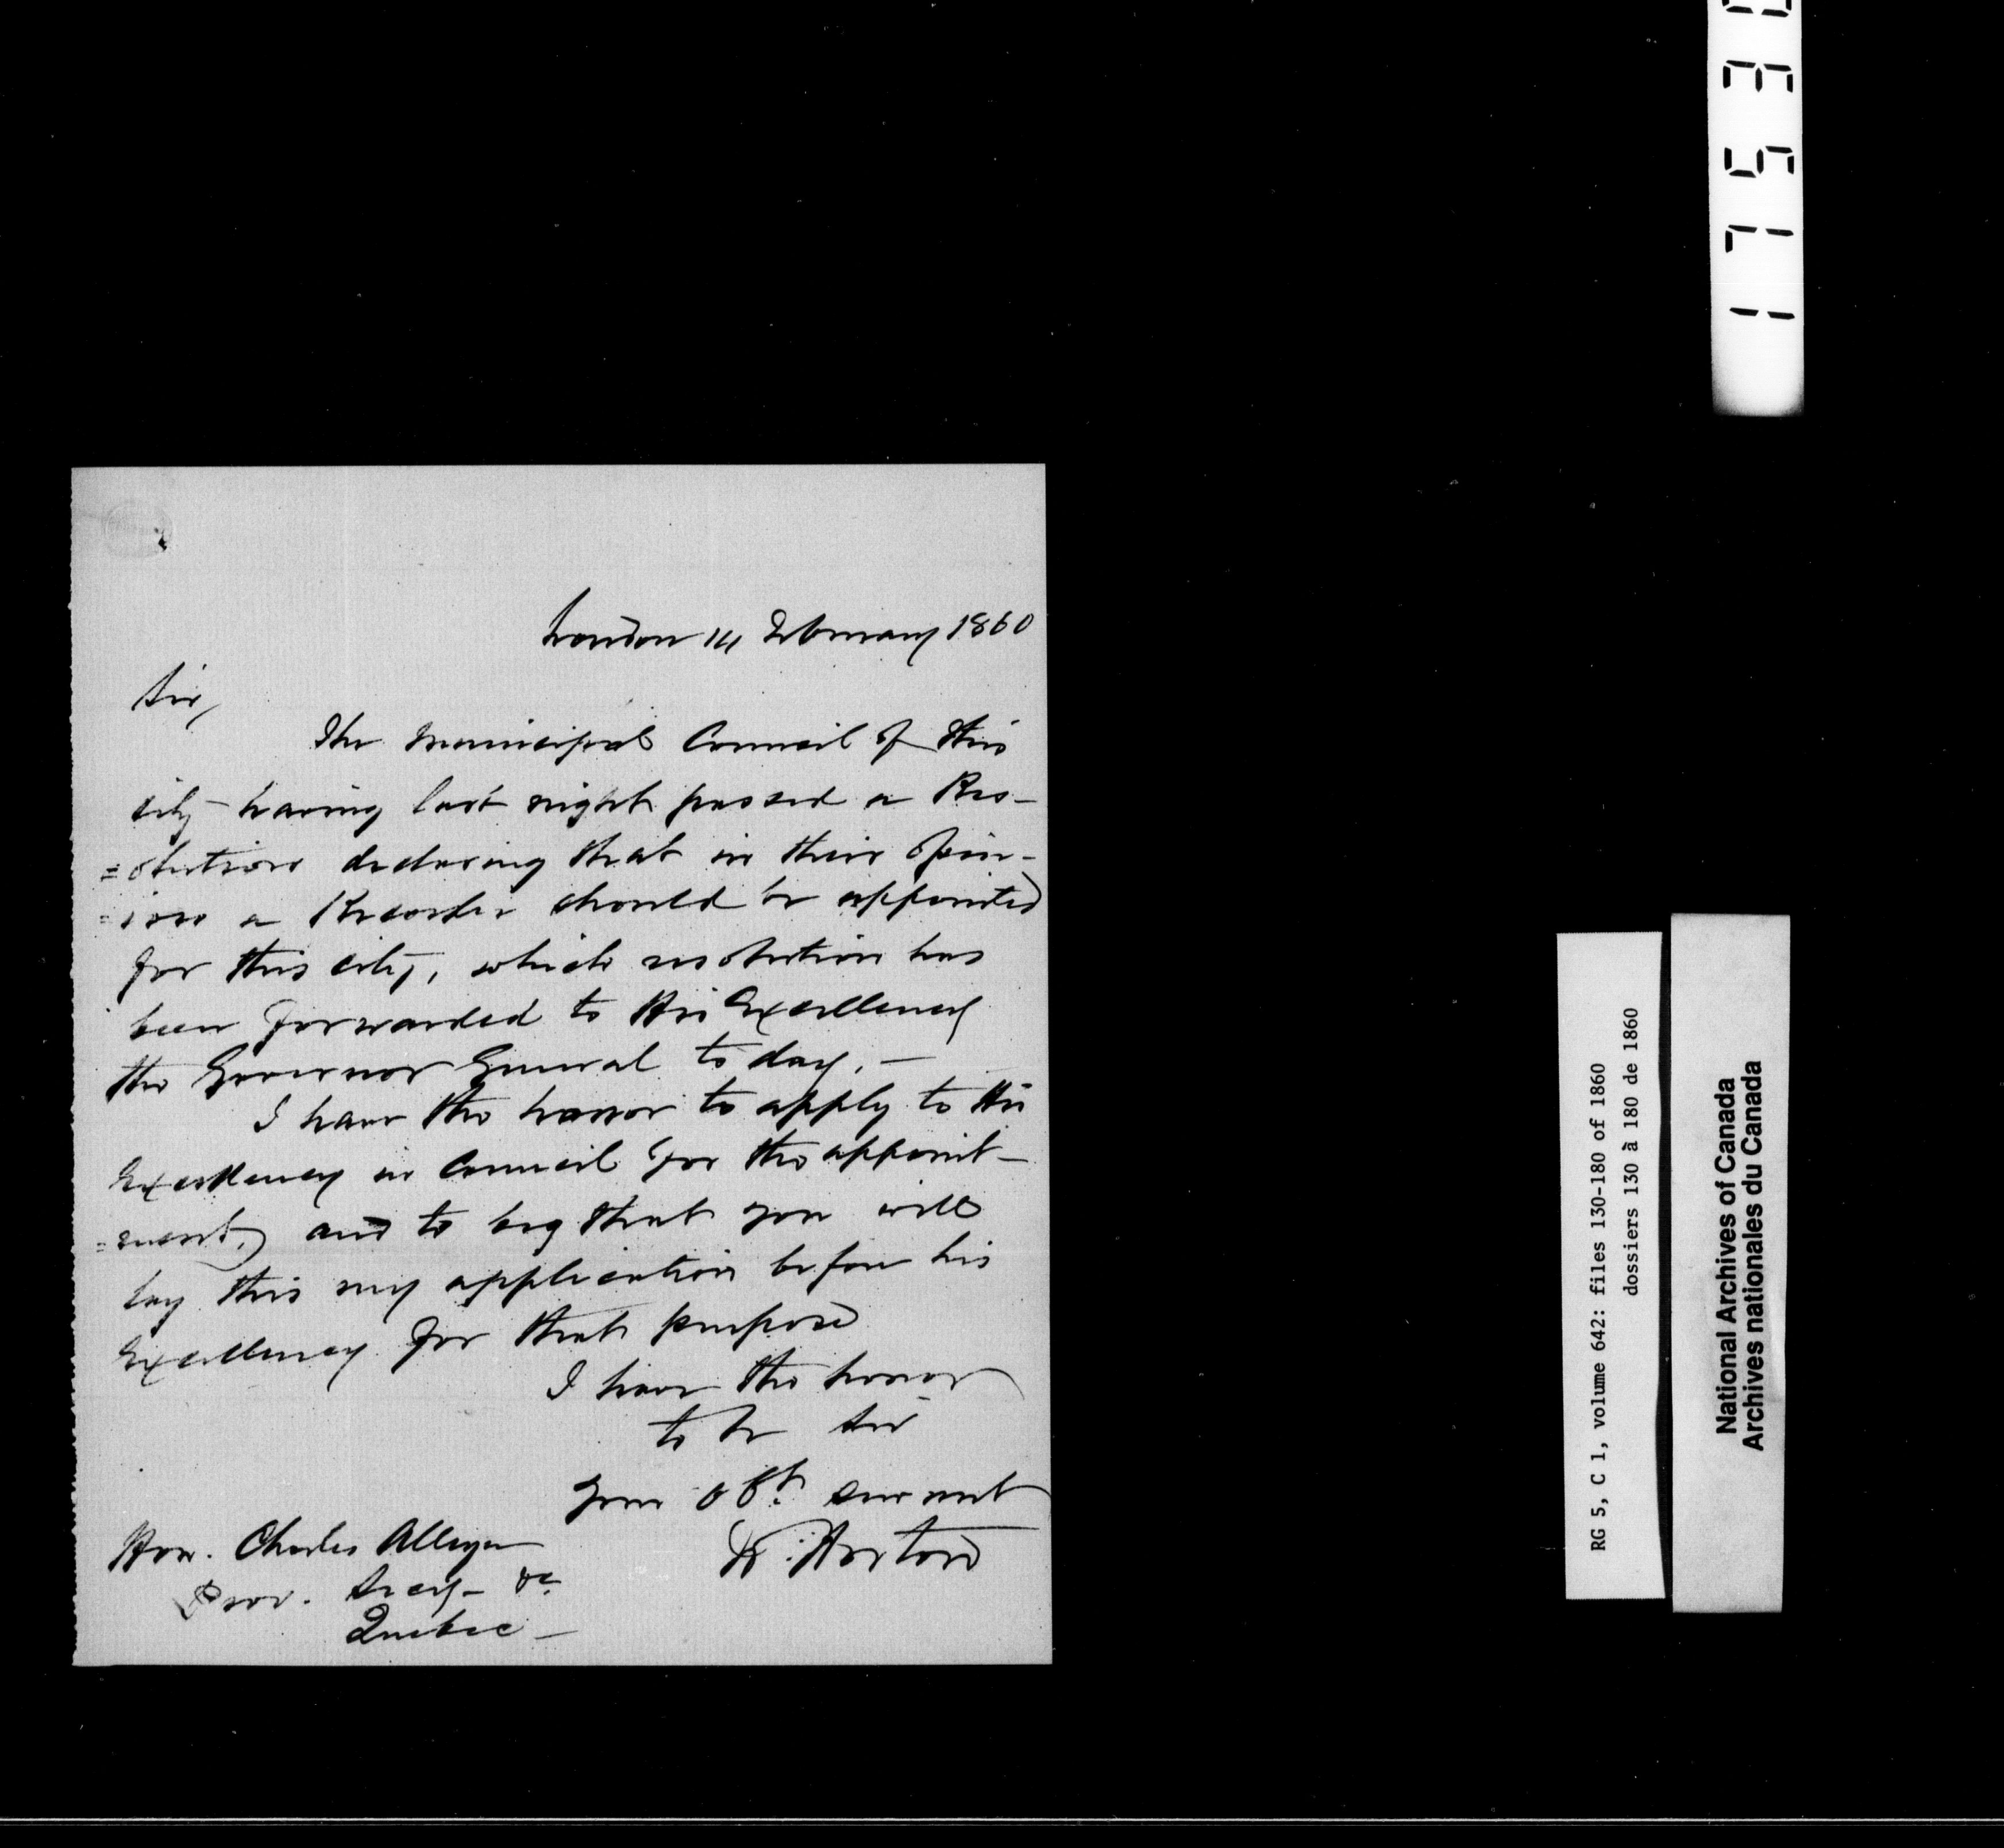 London 14 February 1860
Sir,
The Municipal Council of this
city having last night passed a Res-
=olution declaring that in their Opin-
=ion a Recorder should be appointed
for this city, which resolution has
been forwarded to His Excellency
the Governor General to day. —
I have the honor to apply to His
Excellency in Council for the appoint-
=ment, and to beg that you will
lay this my application before his
Excellency for that purpose
I have the honor
to be Sir
your obt. servant
Horton
Hon. Charles Alleyn
Prov. Secy - &c
Quebec —
1 7 5 3
RG 5, C 1, volume 642: files 130-180 of 1860
dossiers 130 à 180 de 1860
National Archives of Canada
Archives nationales du Canada